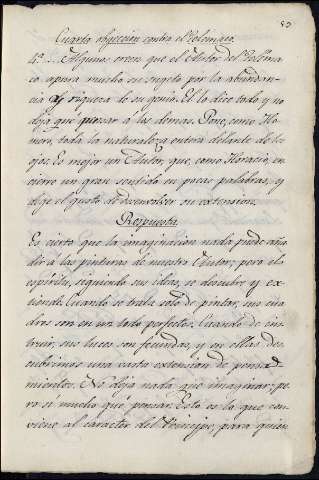 50
Cuarta objeccion contra el Polemaco.
4ª... Algunos creen que el Autor del Polema
co apura mucho su sugeto por la abundan-
cia y riqueza de su genio. El lo dice todo y no
deja que pensar á los demas. Pone, como Ho-
mero, toda la naturaleza entera delante de los
ojos. Es mejor un Autor, que, como Horacio, en-
cierre un gran sentido en pocas palabras, y
deje el gusto de desenvolver su extension.
Respuesta.
Es cierto que la imaginacion nada puede aña
dir á las pinturas de nuestro Autor; pero el
espiritu, siguiendo sus ideas, se descubre y ex-
tiende. Cuando se trata solo de pintar, sus cua
dros son en un todo perfectos. Cuando de ins
truir, sus luces son fecundas, y en ellas des-
cubrimos una vasta extension de pensa-
mientos. No deja nada que imaginar; pe-
ro si mucho que pensar. Esto es lo que con-
viene al caracter del Principe, para quien